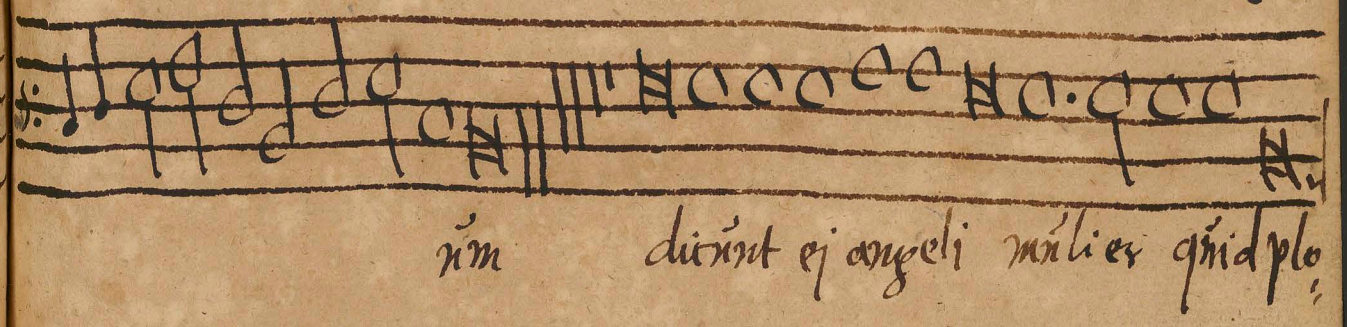 um dicunt ej angeli mulier quid plo